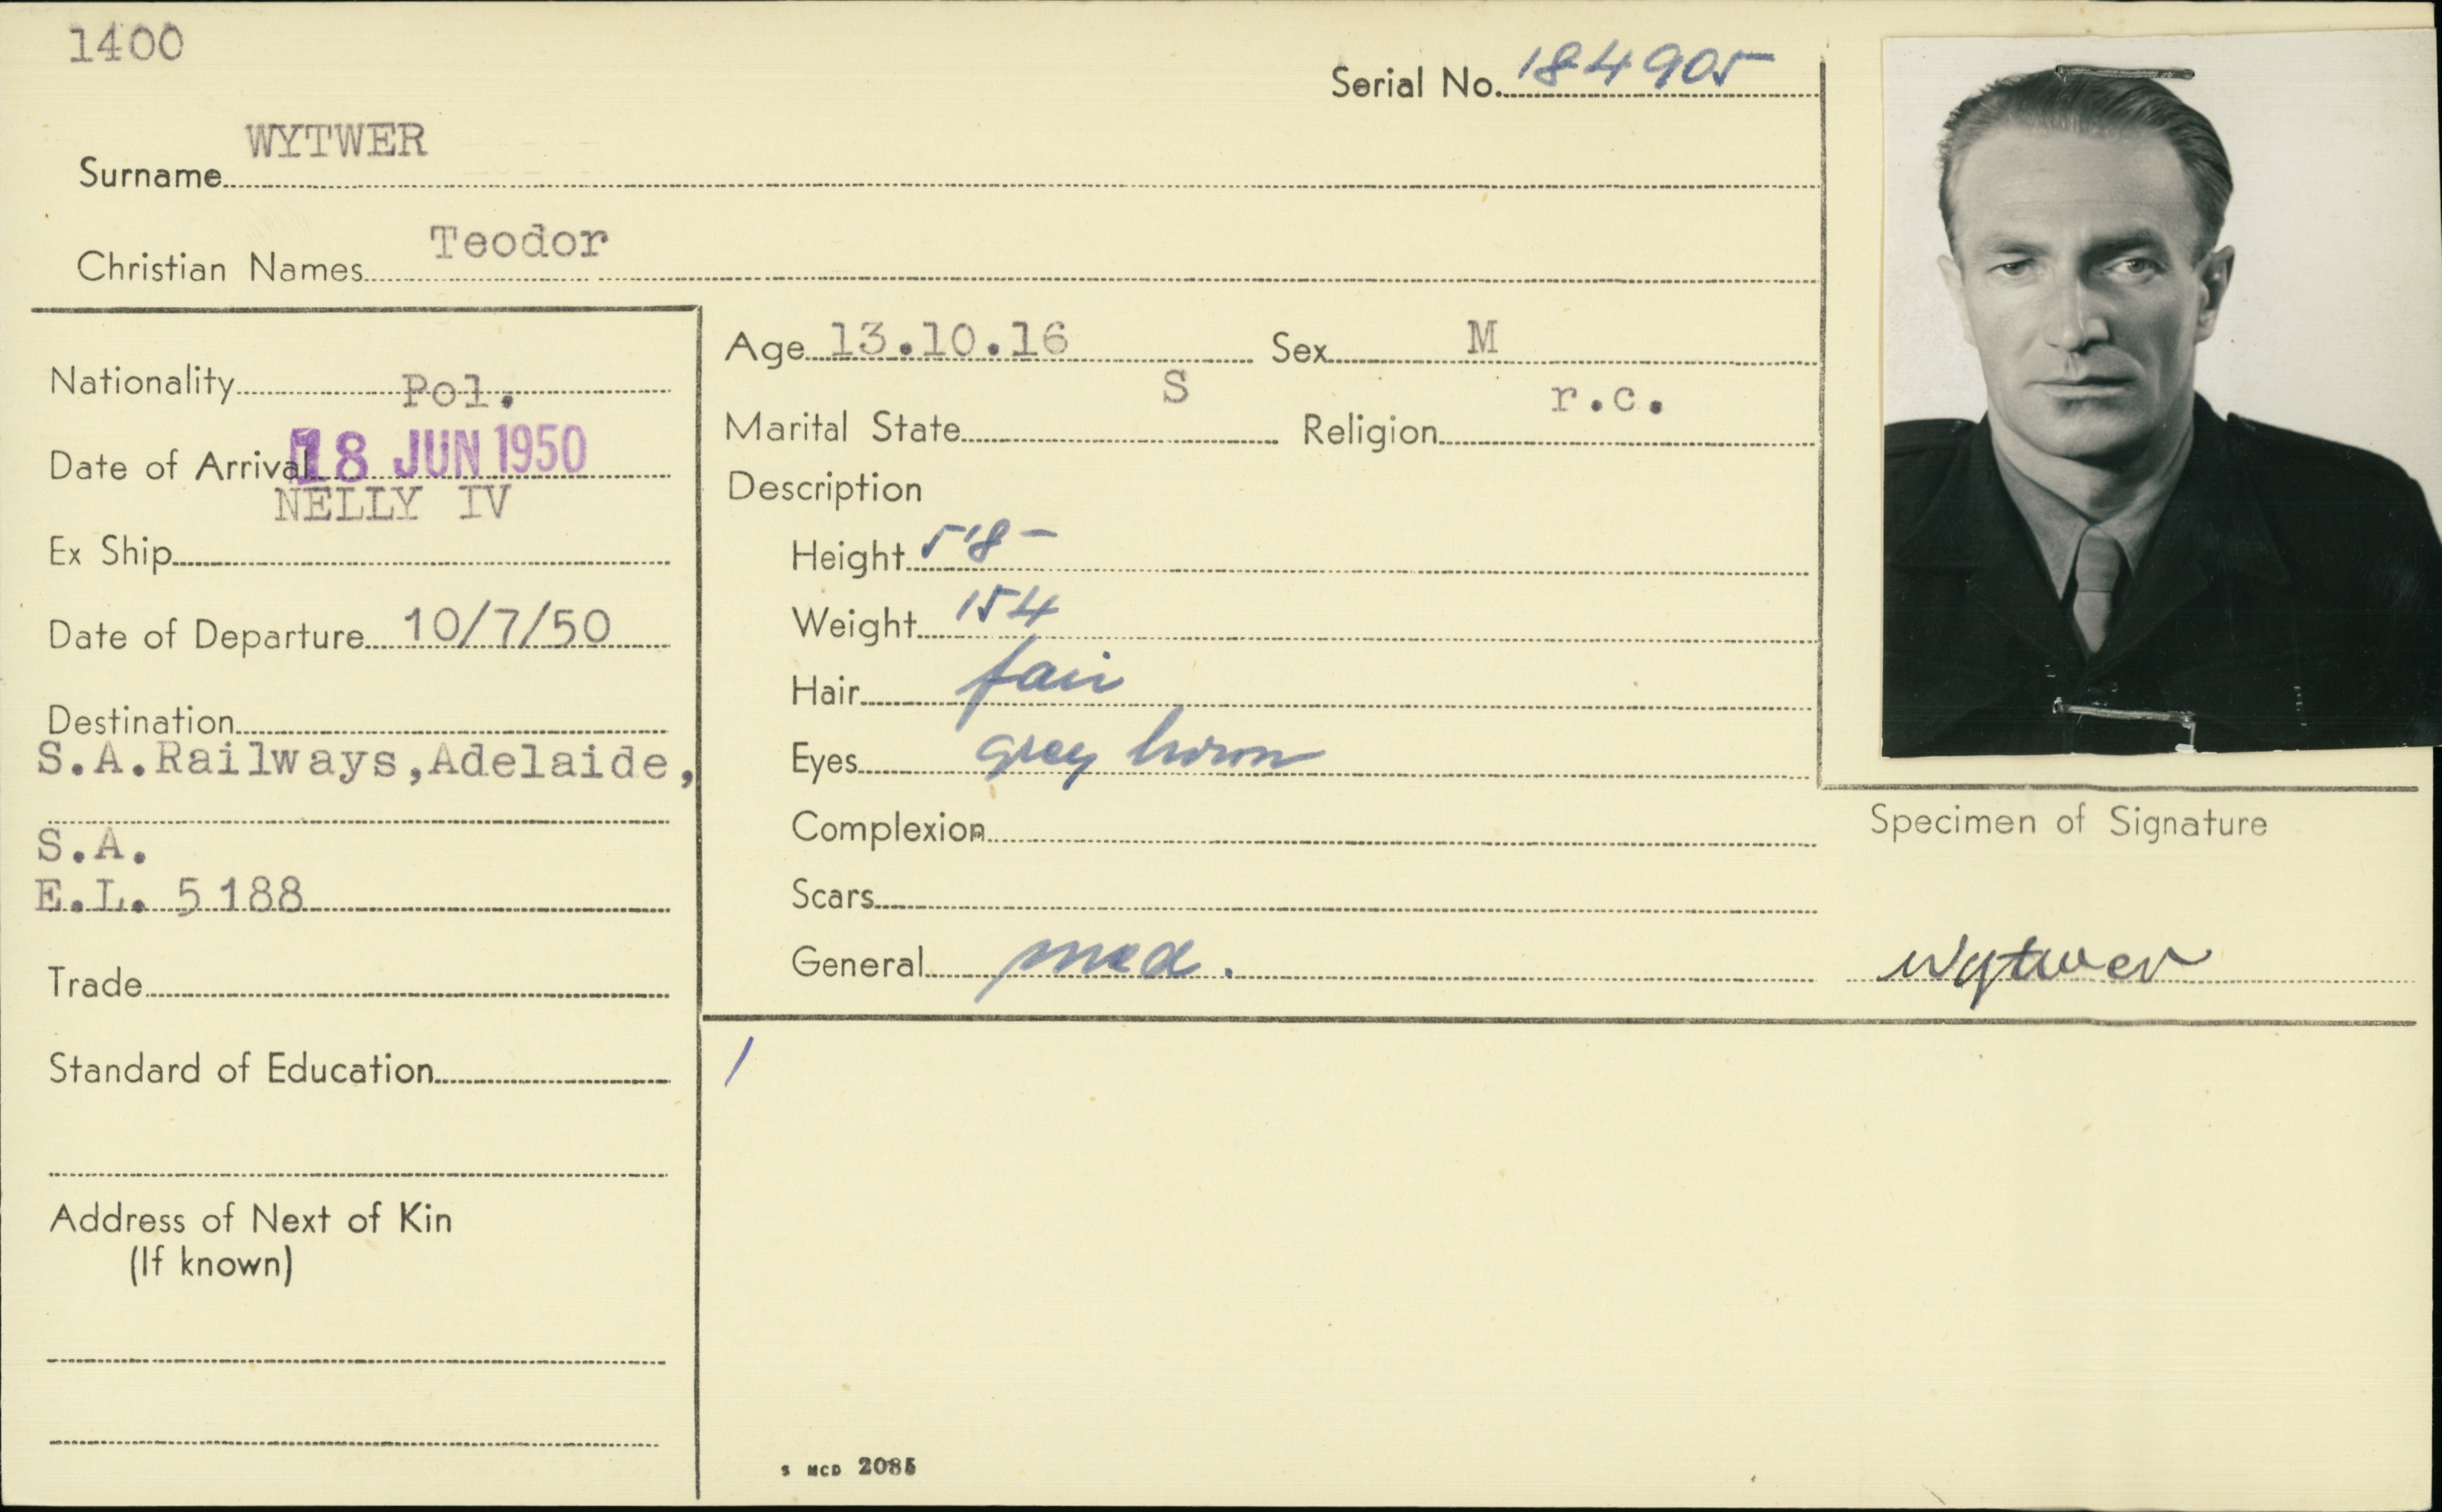 1400
Serial No. 184905
Surname WYTWER
Christian Names Teodor
Nationality Pol.
Date of Arrival 18 JUN 1950
NELLY IV
Ex Ship
Date of Departure 10/7/50
Destination
S.A.Railways,Adelaide,
S.A.
E.L. 5188
Trade
Standard of Education
Address of Next of Kin
(If known)
Age 13.10.16 Sex M
Marital State S Religion r.c.
Description
Height 5'8-
Weight 154
Hair fair
Eyes grey brown
Complexion
Scars
General med.
Specimen of Signature
Wytwer
/
S MCD 2085